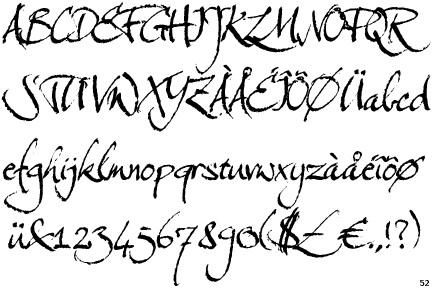 ABCDEFGHIJKLMNOPQR
STUVWXYZÀÅÉÎÕØÜabcd
efghijklmnopqrstuvwxyzàåéîõø
ü&1234567890($£€.,!?)
52